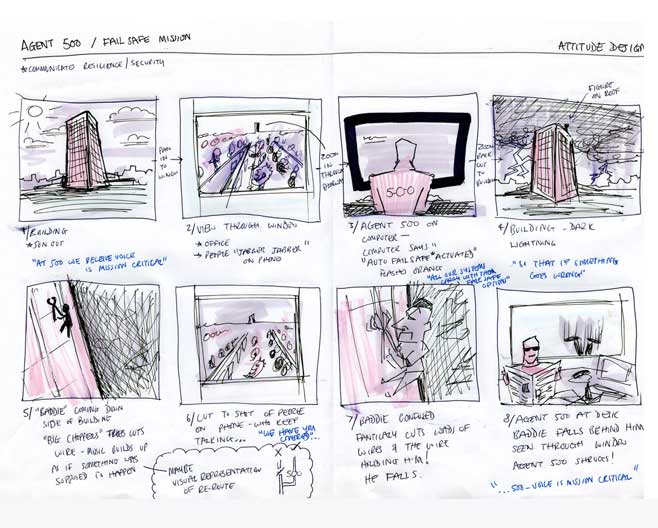 AGENT 500 / FAILSAFE MISSION
ATTITUDE DESIGN
*COMMUNICATE RESILIENCE / SECURITY
FIGURE
ON ROOF
PAN
IN
TO
WINDOW
ZOOM
IN
THROUGH
WINDOW
ZOOM
BACK
OUT
TO
BUILDING
500
1/ BUILDING
* SUN OUT
"AT 500 WE BELIEVE VOICE
IS MISSION CRITICAL"
2/ VIEW THROUGH WINDOW
* OFFICE
* PEOPLE "JABBER JABBER"
ON PHONE
3/ AGENT 500 ON
COMPUTER —
COMPUTER SAYS
"AUTO FAILSAFE ACTUATED"
FLASHING ORANGE
"ALL OUR SYSTEMS
CARRY WITH THEM
FAILSAFE
OPTION"
4/ BUILDING - DARK
LIGHTNING
"SO THAT IF SOMETHING
GOES WRONG"
5/ "BADDIE" COMING DOWN
SIDE OF BUILDING
"BIG CHOPPERS" CUTS
WIRE - MUSIC BUILDS UP
AS IF SOMETHING WAS
SUPPOSED TO HAPPEN
6/ CUT TO SHOT OF PEOPLE
ON PHONE - WHO KEEP
TALKING...
"WE HAVE YOU
COVERED"...
MAYBE
VISUAL REPRESENTATION
OF RE-ROUTE
500
7/ BADDIE CONFUSED
FRANTICALLY CUTS LOADS OF
WIRES & THE WIRE
HOLDING HIM!
HE FALLS.
8/ AGENT 500 AT DESK
BADDIE FALLS BEHIND HIM
SEEN THROUGH WINDOW
AGENT 500 SHRUGS!
"...500 - VOICE IS MISSION CRITICAL"